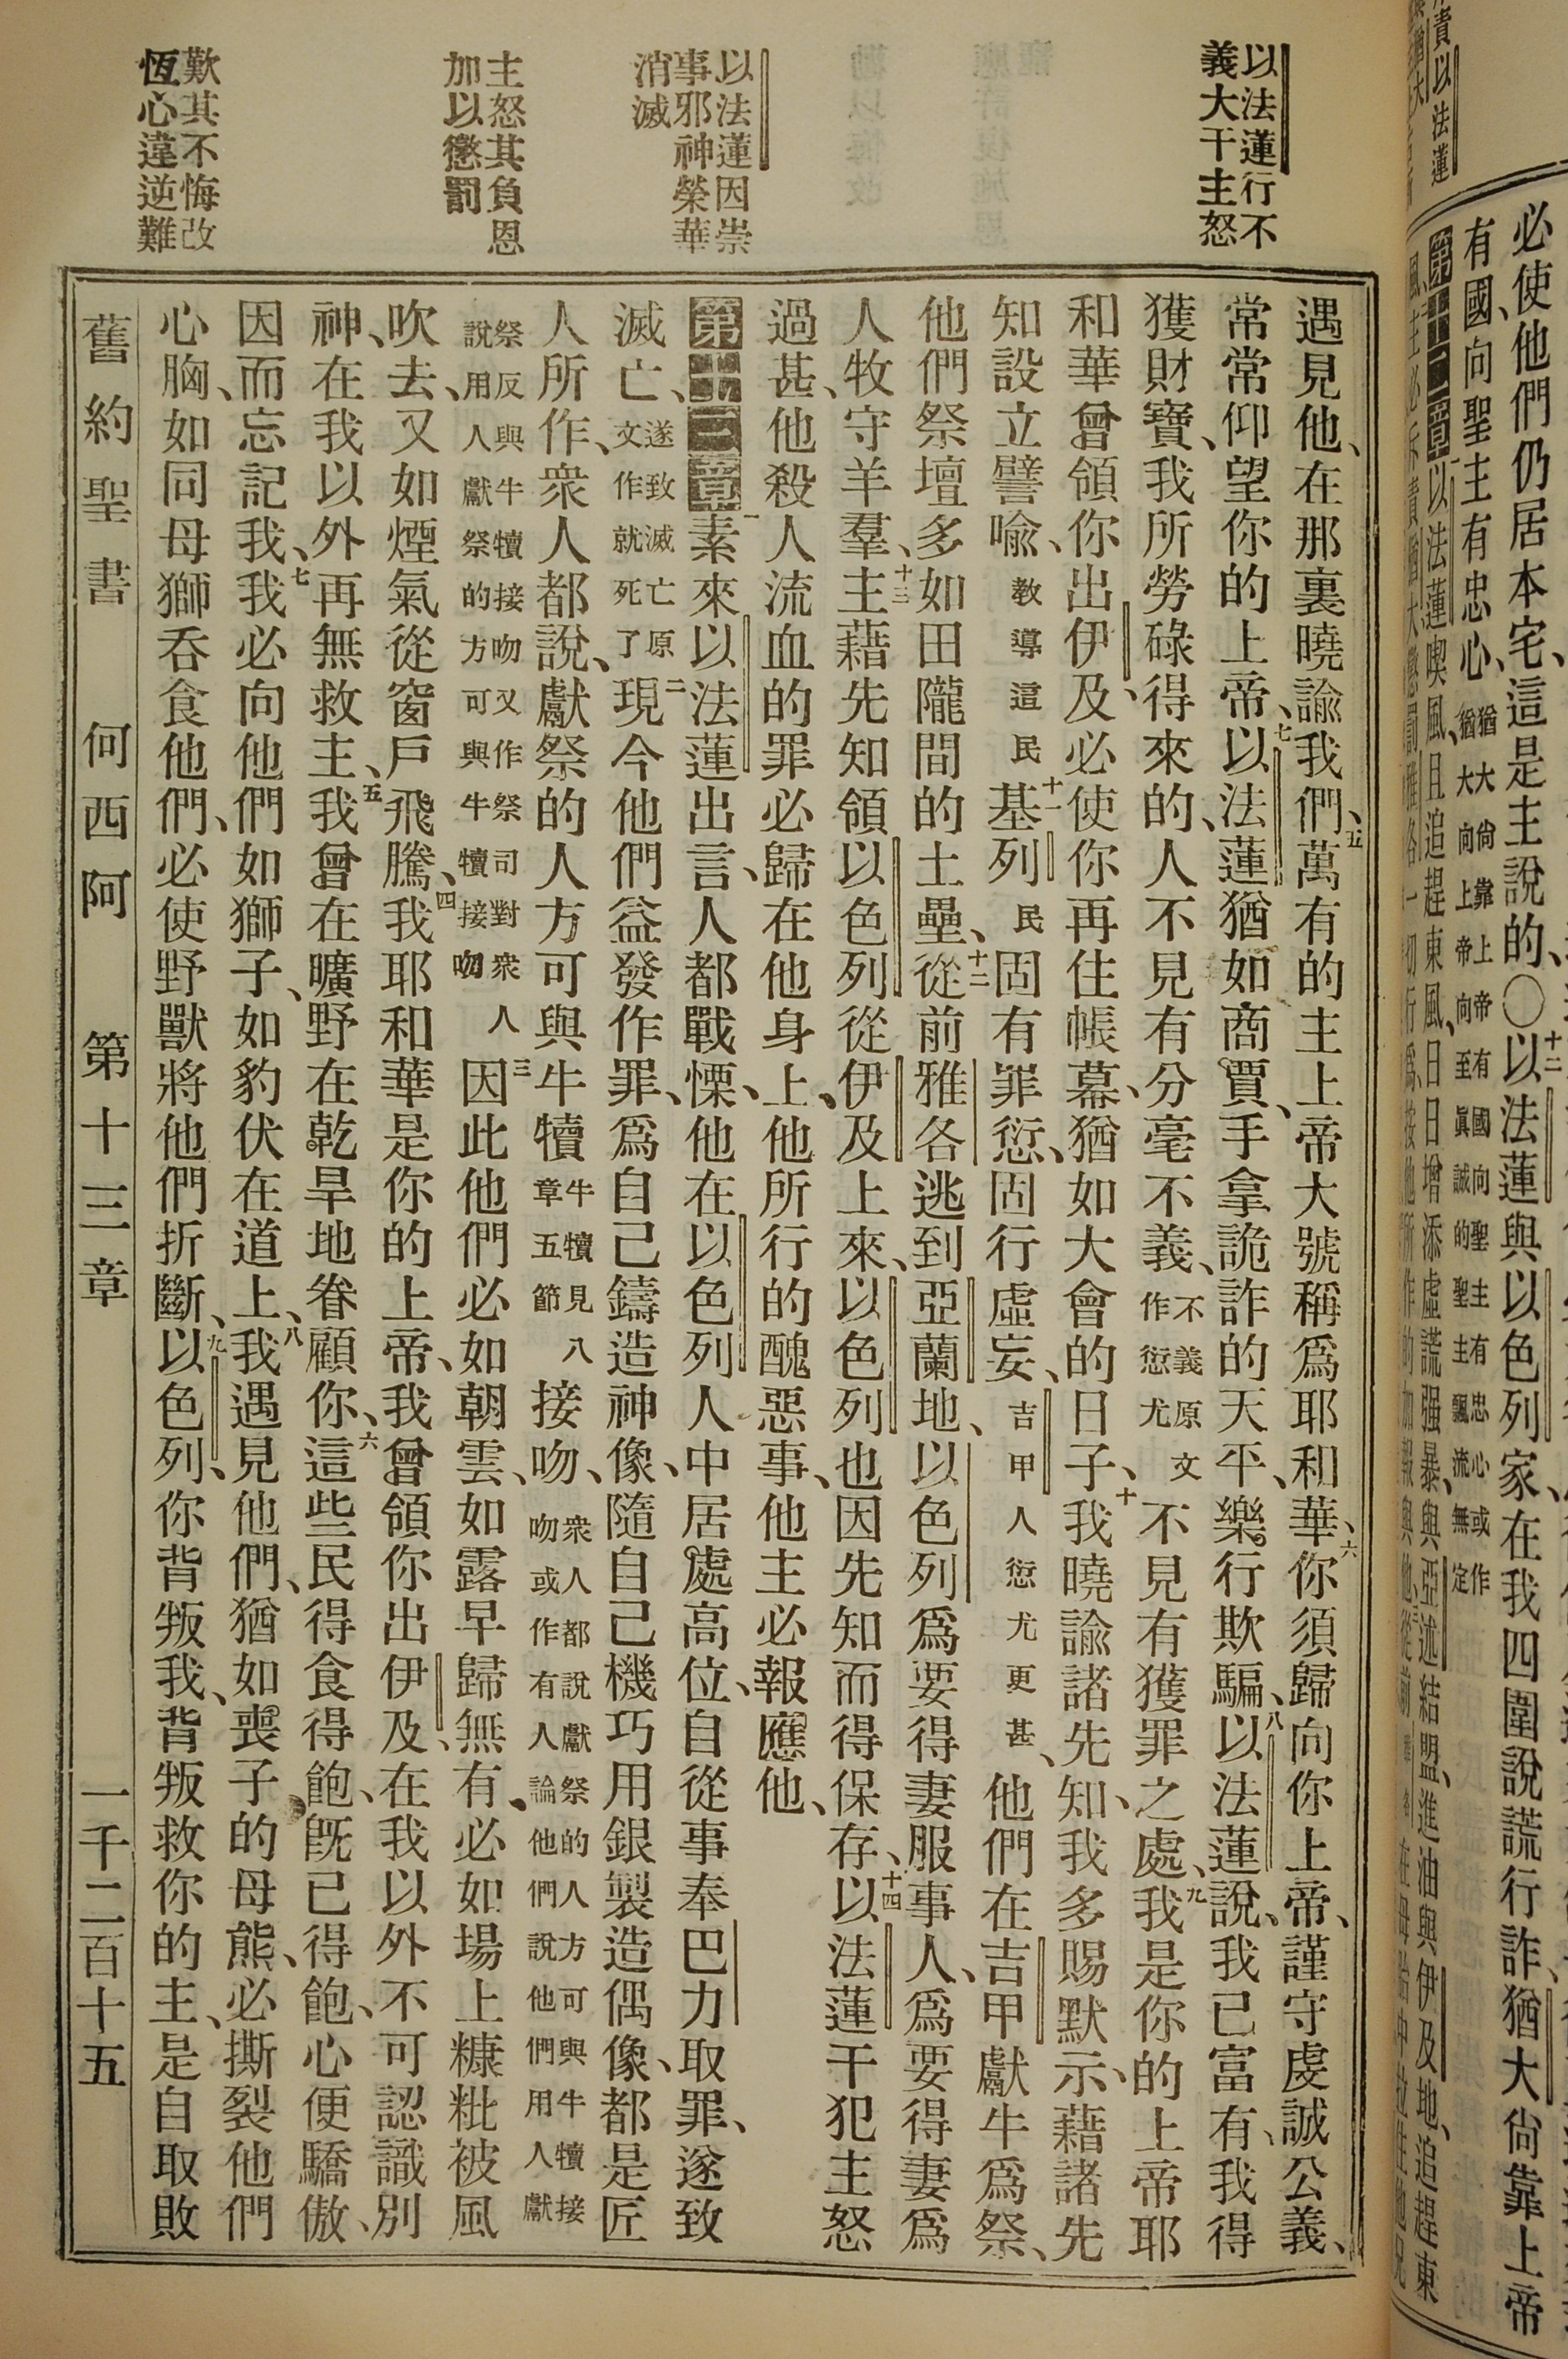 以法蓮行不
義大干主怒
以法蓮因崇
事邪神榮華
消滅
主怒其負恩
加以懲罰
歎其不悔改
恆心違逆難
遇見他、在那裏曉諭我們、五萬有的主上帝大號稱爲耶和華、六你須歸向你上帝、謹守虔誠公義、
常常仰望你的上帝、七以法蓮猶如商賈、手拿詭詐的天平、樂行欺騙、八以法蓮說、我已富有、我得
獲財寶、我所勞碌得來的、人不見有分毫不義、不義原文作愆尤不見有獲罪之處、九我是你的上帝耶
和華、曾領你出伊及、必使你再住帳幕、猶如大會的日子、十我曉諭諸先知、我多賜默示、藉諸先
知設立譬喻、教導這民十一基列民固有罪愆、固行虛妄、吉甲人愆尤更甚、他們在吉甲獻牛爲祭、
他們祭壇多如田隴間的土壘、十二從前雅各逃到亞蘭地、以色列爲要得妻服事人、爲要得妻爲
人牧守羊羣、十三主藉先知領以色列從伊及上來、以色列也因先知而得保存、十四以法蓮干犯主怒
過甚、他殺人流血的罪必歸在他身上、他所行的醜惡事、他主必報應他、
第十三章一素來以法蓮出言、人都戰慄、他在以色列人中居處高位、自從事奉巴力取罪、遂致
滅亡、遂致滅亡原文作就死了二現今他們益發作罪、爲自己鑄造神像、隨自己機巧用銀製造偶像、都是匠
人所作、衆人都說、獻祭的人方可與牛犢牛犢見八章五節接吻、衆人都說獻祭的人方可與牛犢接吻或作有人論他們說他們用人獻
祭反與牛犢接吻又作祭司對衆人說用人獻祭的方可與牛犢接吻三因此他們必如朝雲、如露早歸無有、必如場上糠粃被風
吹去、又如煙氣從窗戶飛騰、四我耶和華是你的上帝、我曾領你出伊及、在我以外不可認識別
神、在我以外再無救主、五我曾在曠野在乾旱地眷顧你、六這些民得食得飽、旣已得飽、心便驕傲、
因而忘記我、七我必向他們如獅子、如豹伏在道上、八我遇見他們、猶如喪子的母熊、必撕裂他們
心胸、如同母獅吞食他們、必使野獸將他們折斷、九以色列、你背叛我、背叛救你的主、是自取敗
舊約聖書 何西阿 第十三章 一千二百十五
必使他們仍居本宅、這是主說的、〇十二以法蓮與以色列家、在我四圍說謊行詐、猶大尙靠上帝
有國、向聖主有忠心、猶大尙靠上帝有國向聖主有忠心或作猶大向上帝向至眞誠的聖主飄流無定
第十二章一以法蓮喫風、且追趕東風、日日增添虛謊强暴、與亞述結盟、進油與伊及地、追趕東